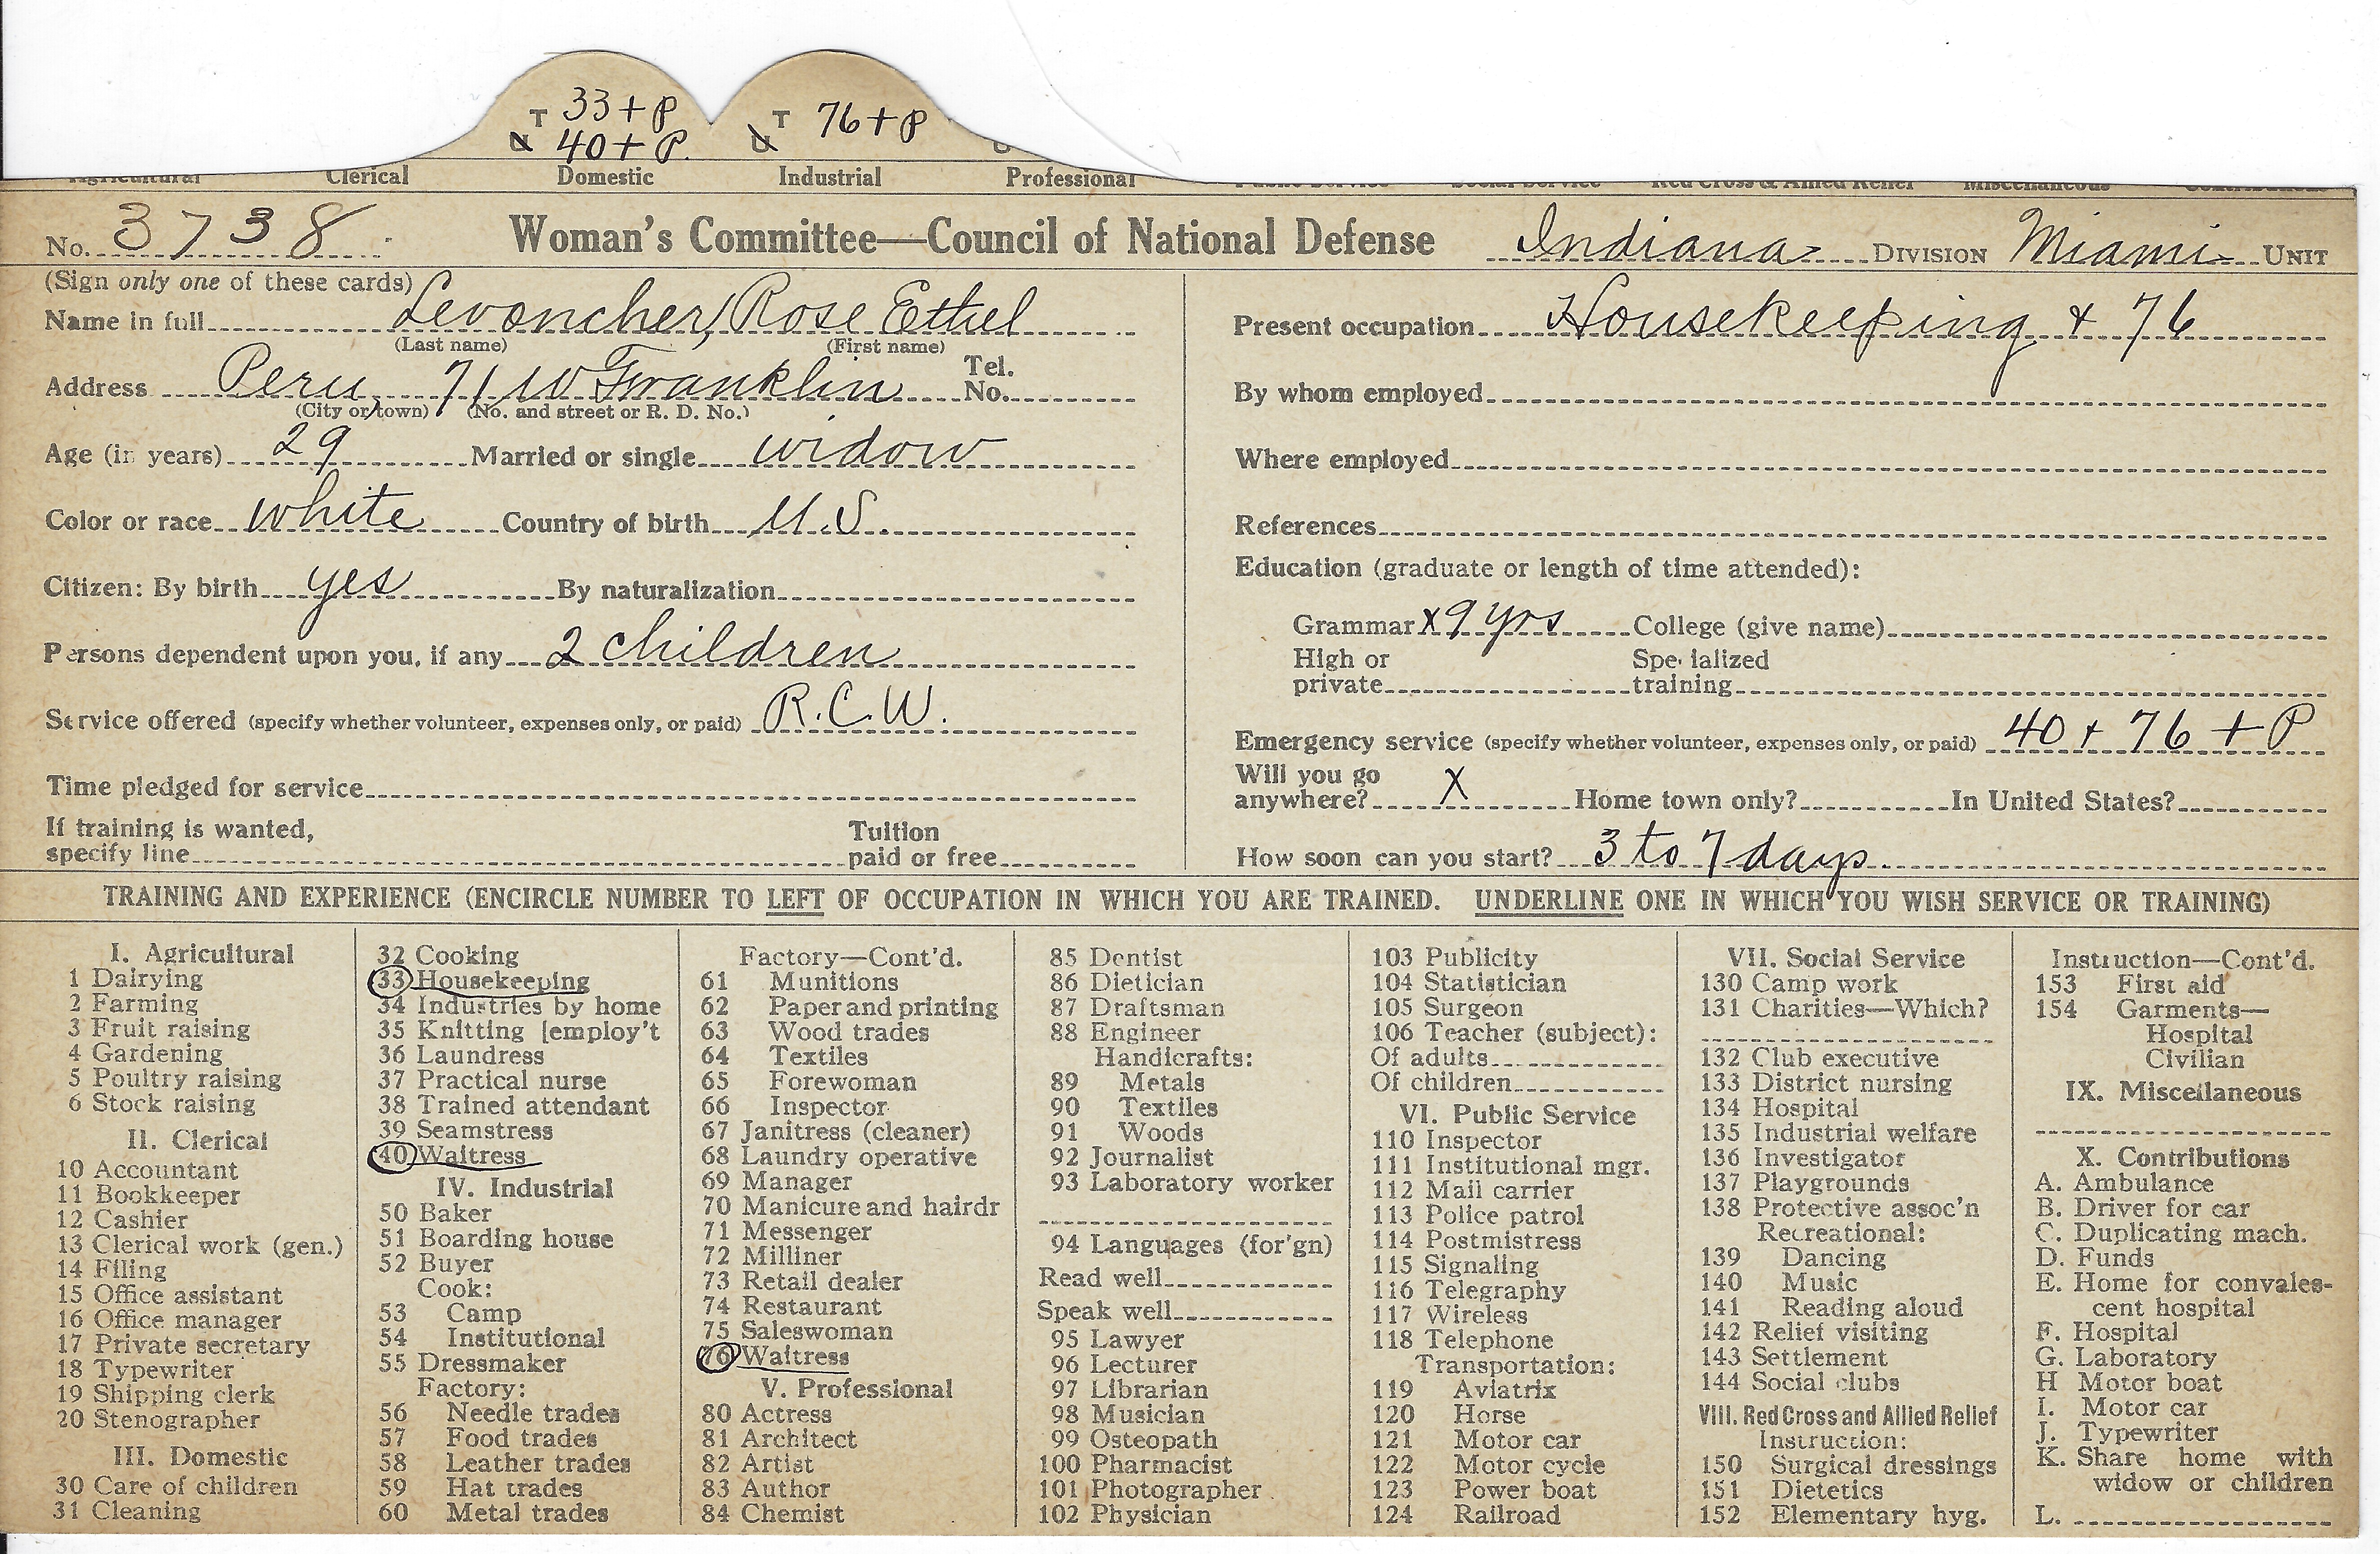 T 33 + P T 76 + P
U 40 + P. U
Agricultural Clerical Domestic Industrial Professional Public Service Social Service Red Cross & Allied Relief Miscellaneous Contributions
No. 3738 Woman's Committee—Council of National Defense Indiana DIVISION Miami UNIT
(Sign only one of these cards)
Name in full Levoncher, Rose Ethel
(Last name) (First name)
Address Peru, 71 W Franklin Tel. No.
(City or town) (No. and street or R. D. No.)
Age (in years) 29 Married or single widow
Color or race white Country of birth U.S.
Citizen: By birth yes By naturalization
Persons dependent upon you, if any 2 children
Service offered (specify whether volunteer, expenses only, or paid) R.C.W.
Time pledged for service
If training is wanted, specify line Tuition paid or free
Present occupation Housekeeping + 76
By whom employed
Where employed
References
Education (graduate or length of time attended):
Grammar X 9 yrs College (give name)
High or private Specialized training
Emergency service (specify whether volunteer, expenses only, or paid) 40 + 76 + P
Will you go anywhere? X Home town only? In United States?
How soon can you start? 3 to 7 days
TRAINING AND EXPERIENCE (ENCIRCLE NUMBER TO LEFT OF OCCUPATION IN WHICH YOU ARE TRAINED. UNDERLINE ONE IN WHICH YOU WISH SERVICE OR TRAINING)
I. Agricultural
1 Dairying
2 Farming
3 Fruit raising
4 Gardening
5 Poultry raising
6 Stock raising
II. Clerical
10 Accountant
11 Bookkeeper
12 Cashier
13 Clerical work (gen.)
14 Filing
15 Office assistant
16 Office manager
17 Private secretary
18 Typewriter
19 Shipping clerk
20 Stenographer
III. Domestic
30 Care of children
31 Cleaning
32 Cooking
33 Housekeeping
34 Industries by home
35 Knitting [employ't
36 Laundress
37 Practical nurse
38 Trained attendant
39 Seamstress
40 Waitress
IV. Industrial
50 Baker
51 Boarding house
52 Buyer
Cook:
53 Camp
54 Institutional
55 Dressmaker
Factory:
56 Needle trades
57 Food trades
58 Leather trades
59 Hat trades
60 Metal trades
Factory—Cont'd.
61 Munitions
62 Paper and printing
63 Wood trades
64 Textiles
65 Forewoman
66 Inspector
67 Janitress (cleaner)
68 Laundry operative
69 Manager
70 Manicure and hairdr
71 Messenger
72 Milliner
73 Retail dealer
74 Restaurant
75 Saleswoman
76 Waitress
V. Professional
80 Actress
81 Architect
82 Artist
83 Author
84 Chemist
85 Dentist
86 Dietician
87 Draftsman
88 Engineer
Handicrafts:
89 Metals
90 Textiles
91 Woods
92 Journalist
93 Laboratory worker
94 Languages (for'gn)
Read well
Speak well
95 Lawyer
96 Lecturer
97 Librarian
98 Musician
99 Osteopath
100 Pharmacist
101 Photographer
102 Physician
103 Publicity
104 Statistician
105 Surgeon
106 Teacher (subject):
Of adults
Of children
VI. Public Service
110 Inspector
111 Institutional mgr.
112 Mail carrier
113 Police patrol
114 Postmistress
115 Signaling
116 Telegraphy
117 Wireless
118 Telephone
Transportation:
119 Aviatrix
120 Horse
121 Motor car
122 Motor cycle
123 Power boat
124 Railroad
VII. Social Service
130 Camp work
131 Charities—Which?
132 Club executive
133 District nursing
134 Hospital
135 Industrial welfare
136 Investigator
137 Playgrounds
138 Protective assoc'n
Recreational:
139 Dancing
140 Music
141 Reading aloud
142 Relief visiting
143 Settlement
144 Social clubs
VIII. Red Cross and Allied Relief
Instruction:
150 Surgical dressings
151 Dietetics
152 Elementary hyg.
Instruction—Cont'd.
153 First aid
154 Garments—
Hospital
Civilian
IX. Miscellaneous
X. Contributions
A. Ambulance
B. Driver for car
C. Duplicating mach.
D. Funds
E. Home for convales-
cent hospital
F. Hospital
G. Laboratory
H Motor boat
I. Motor car
J. Typewriter
K. Share home with
widow or children
L.